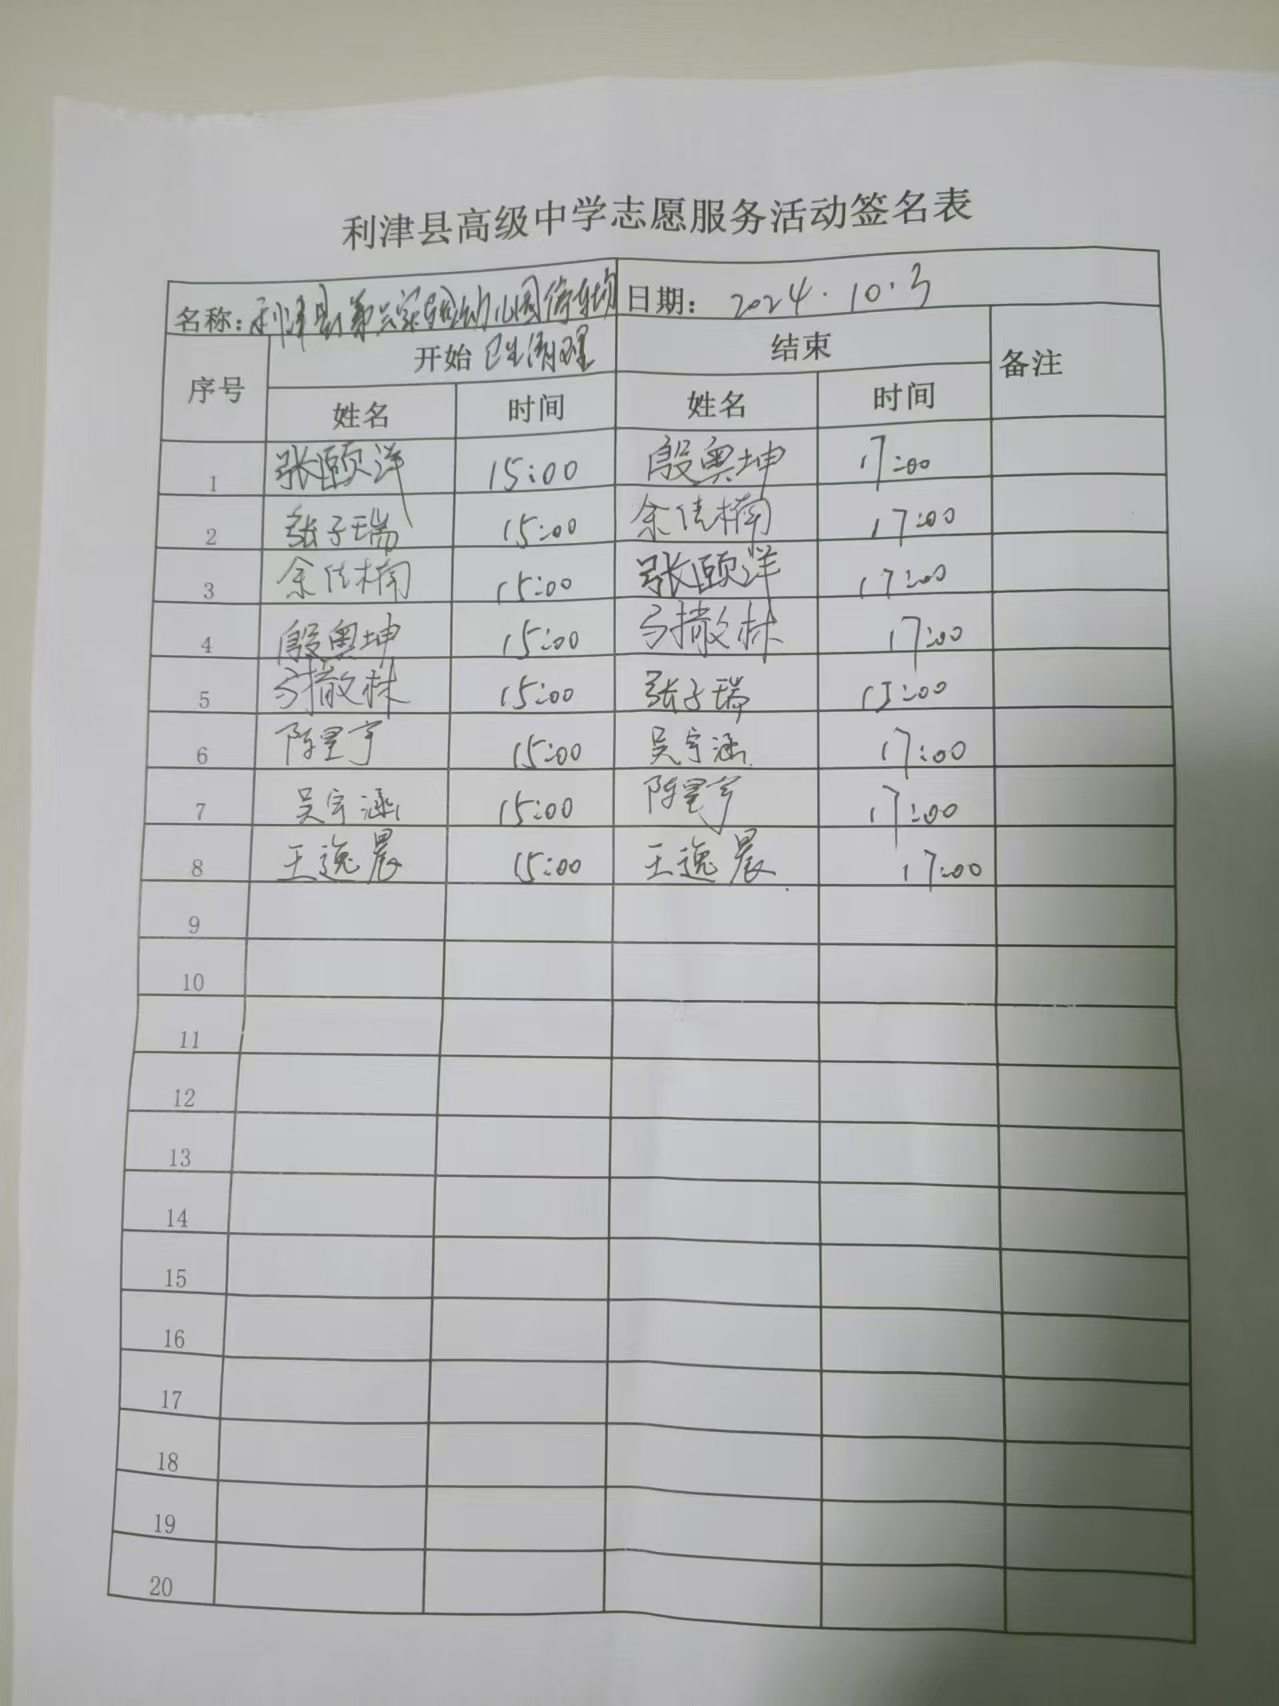 利津县高级中学志愿服务活动签名表
名称：利津县第六实验幼儿园停车场 日期： 2024.10.3
卫生清理
序号 开始 结束 备注
姓名 时间 姓名 时间
1 张颐洋 15:00 殷奥坤 17:00
2 张子瑞 15:00 余佳楠 17:00
3 余佳楠 15:00 张颐洋 17:00
4 殷奥坤 15:00 林 17:00
5 林 15:00 张子瑞 15:00
6 陈星宇 15:00 吴宇涵 17:00
7 吴宇涵 15:00 陈星宇 17:00
8 王逸晨 15:00 王逸晨 17:00
9
10
11
12
13
14
15
16
17
18
19
20